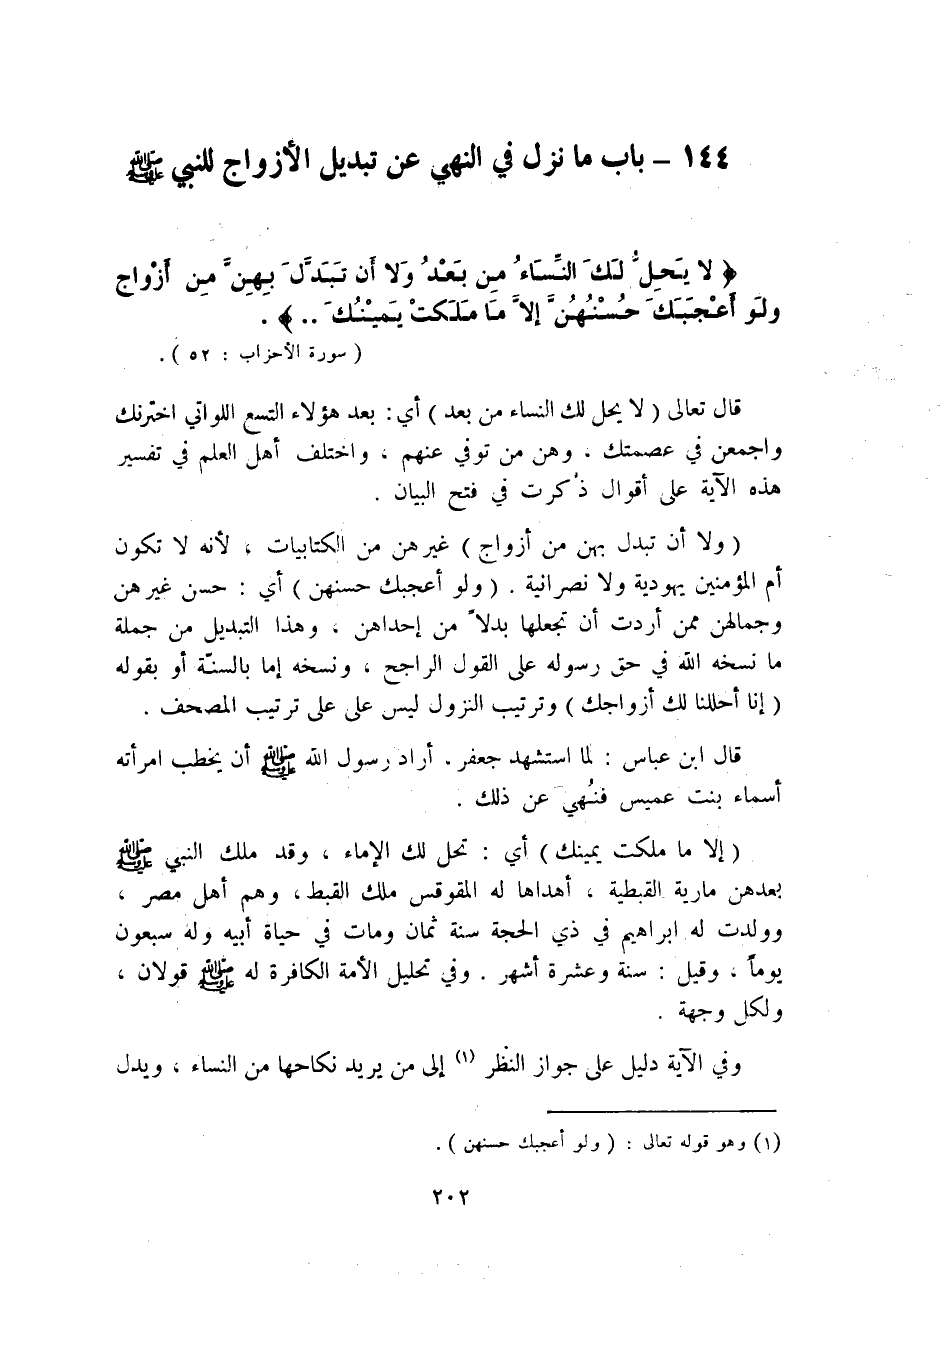 ١٤٤ – باب ما نزل في النهي عن تبديل الأزواج للنبي ﷺ
﴿ لا يَحِلُّ لَكَ النِّسَاءُ مِن بَعْدُ وَلا أَن تَبَدَّلَ بِهِنَّ مِن أَزْواجٍ
ولَو أَعْجَبَكَ حُسْنُهُنَّ إلاَّ مَا مَلَكَتْ يَمِيْنُكَ .. ﴾ .
( سورة الأحزاب : ٥٢ ) .
قال تعالى ( لا يحل لك النساء من بعد ) أي : بعد هؤلاء التسع اللواتي اخترنك
واجمعن في عصمتك ، وهن من توفي عنهم ، واختلف أهل العلم في تفسير
هذه الآية على أقوال ذُكرت في فتح البيان .
( ولا أن تبدل بهن من أزواج ) غيرهن من الكتابيات ، لأنه لا تكون
أم المؤمنين يهودية ولا نصرانية . ( ولو أعجبك حسنهن ) أي : حسن غيرهن
وجمالهن ممن أردت أن تجعلها بدلاً من إحداهن ، وهذا التبديل من جملة
ما نسخه الله في حق رسوله على القول الراجح ، ونسخه إما بالسنّة أو بقوله
( إنا أحللنا لك أزواجك ) وترتيب النزول ليس على على ترتيب المصحف .
قال ابن عباس : لما استشهد جعفر . أراد رسول الله ﷺ أن يخطب امرأته
أسماء بنت عميس فنُهيَ عن ذلك .
( إلا ما ملكت يمينك ) أي : تحل لك الإماء ، وقد ملك النبي ﷺ
بعدهن مارية القبطية ، أهداها له المقوقس ملك القبط ، وهم أهل مصر ،
وولدت له ابراهيم في ذي الحجة سنة ثمان ومات في حياة أبيه وله سبعون
يوماً ، وقيل : سنة وعشرة أشهر . وفي تحليل الأمة الكافرة له ﷺ قولان ،
ولكل وجهة .
وفي الآية دليل على جواز النظر (١) إلى من يريد نكاحها من النساء ، ويدل
(١) وهو قوله تعالى : ( ولو أعجبك حسنهن ) .
٢٠٢